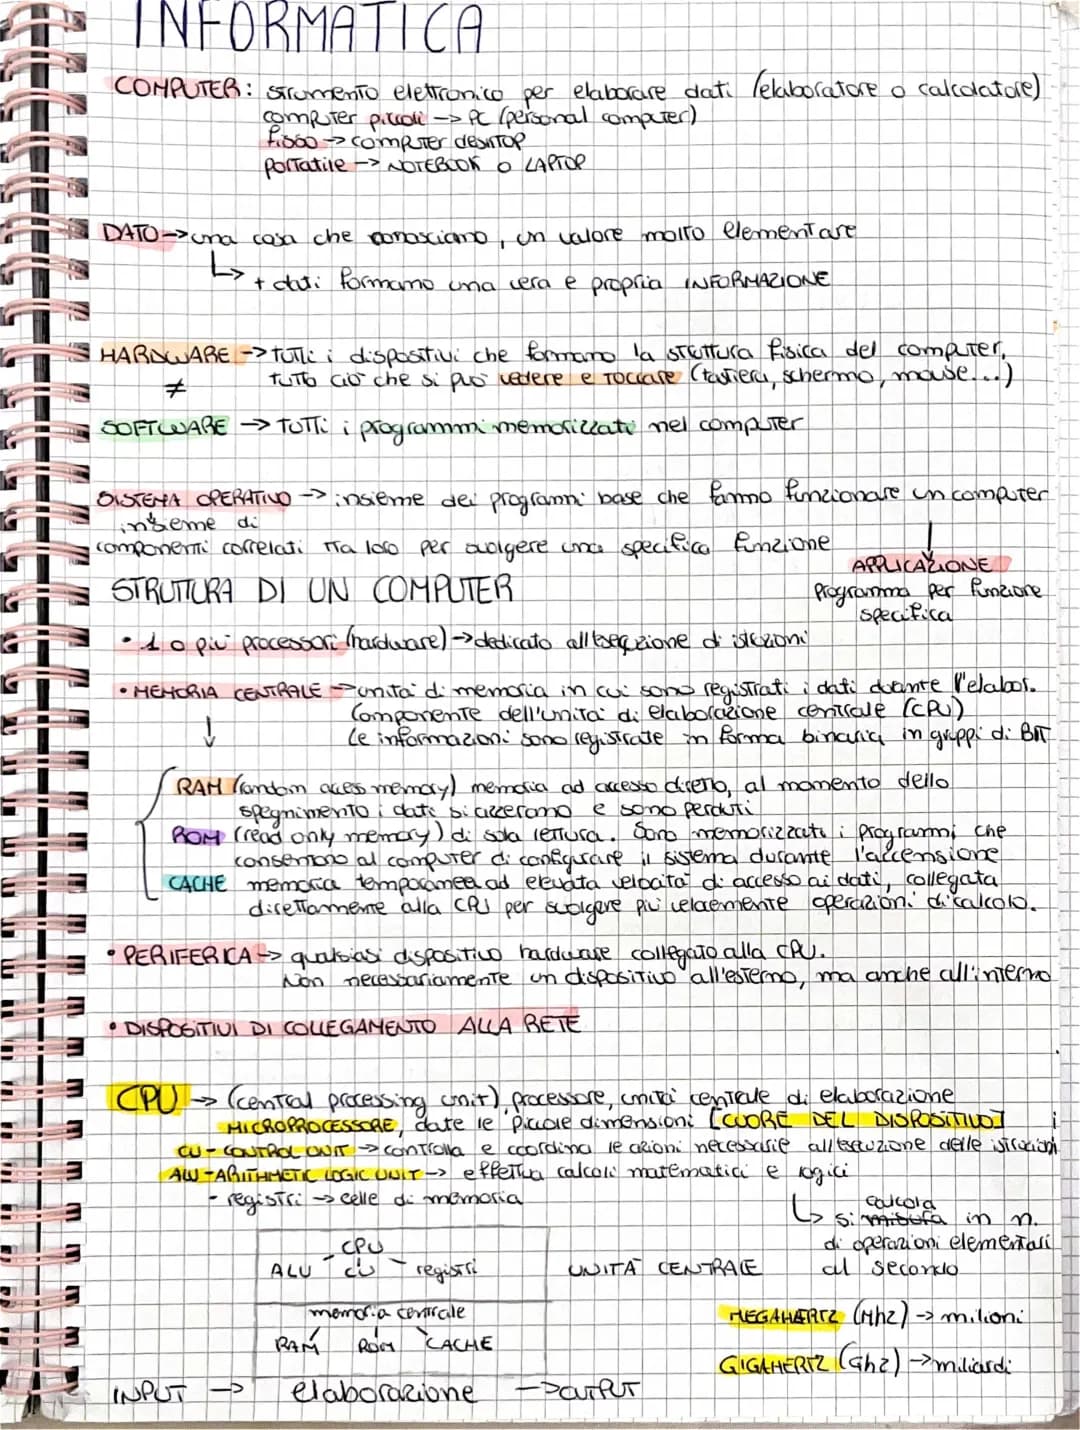 INFORMATICA
COMPUTER: strumento elettronico per elaborare dati (elaboratore o calcolatore)
computer piccoli -> PC (personal computer)
fisso -> computer desktop
portatile -> NOTEBOOK o LAPTOP
DATO -> una cosa che conosciamo, un valore molto elementare
↳ + dati formano una vera e propria INFORMAZIONE
HARDWARE -> tutti i dispositivi che formano la struttura fisica del computer,
≠ tutto ciò che si può vedere e toccare (tastiera, schermo, mouse...)
SOFTWARE -> tutti i programmi memorizzati nel computer
SISTEMA OPERATIVO -> insieme dei programmi base che fanno funzionare un computer
insieme di
componenti correlati tra loro per svolgere una specifica funzione
↓
APPLICAZIONE
programma per funzione
specifica
STRUTTURA DI UN COMPUTER
• 1 o più processori (hardware) -> dedicato all'esecuzione di istruzioni
• MEMORIA CENTRALE -> unità di memoria in cui sono registrati i dati durante l'elabor.
↓ Componente dell'unità di elaborazione centrale (CPU)
Le informazioni sono registrate in forma binaria in gruppi di BIT
RAM (random acess memory) memoria ad accesso diretto, al momento dello
spegnimento i dati si azzerano e sono perduti
ROM (read only memory) di sola lettura. Sono memorizzati i programmi che
consentono al computer di configurare il sistema durante l'accensione
CACHE memoria temporanea ad elevata velocità di accesso ai dati, collegata
direttamente alla CPU per svolgere più velocemente operazioni di calcolo.
• PERIFERICA -> qualsiasi dispositivo hardware collegato alla CPU.
Non necessariamente un dispositivo all'esterno, ma anche all'interno
• DISPOSITIVI DI COLLEGAMENTO ALLA RETE
CPU -> (central processing unit), processore, unità centrale di elaborazione
MICROPROCESSORE, date le piccole dimensioni [CUORE DEL DISPOSITIVO]
CU - CONTROL UNIT -> controlla e coordina le azioni necessarie all'esecuzione delle istruzioni
ALU - ARITHMETIC LOGIC UNIT -> effettua calcoli matematici e logici
- registri -> celle di memoria
calcola
↳ si misura in n.
di operazioni elementari
al secondo
CPU
ALU - CU - registri
UNITÀ CENTRALE
memoria centrale
RAM ROM CACHE
MEGAHERTZ (Mhz) -> milioni
GIGAHERTZ (Ghz) -> miliardi
INPUT -> elaborazione -> OUTPUT